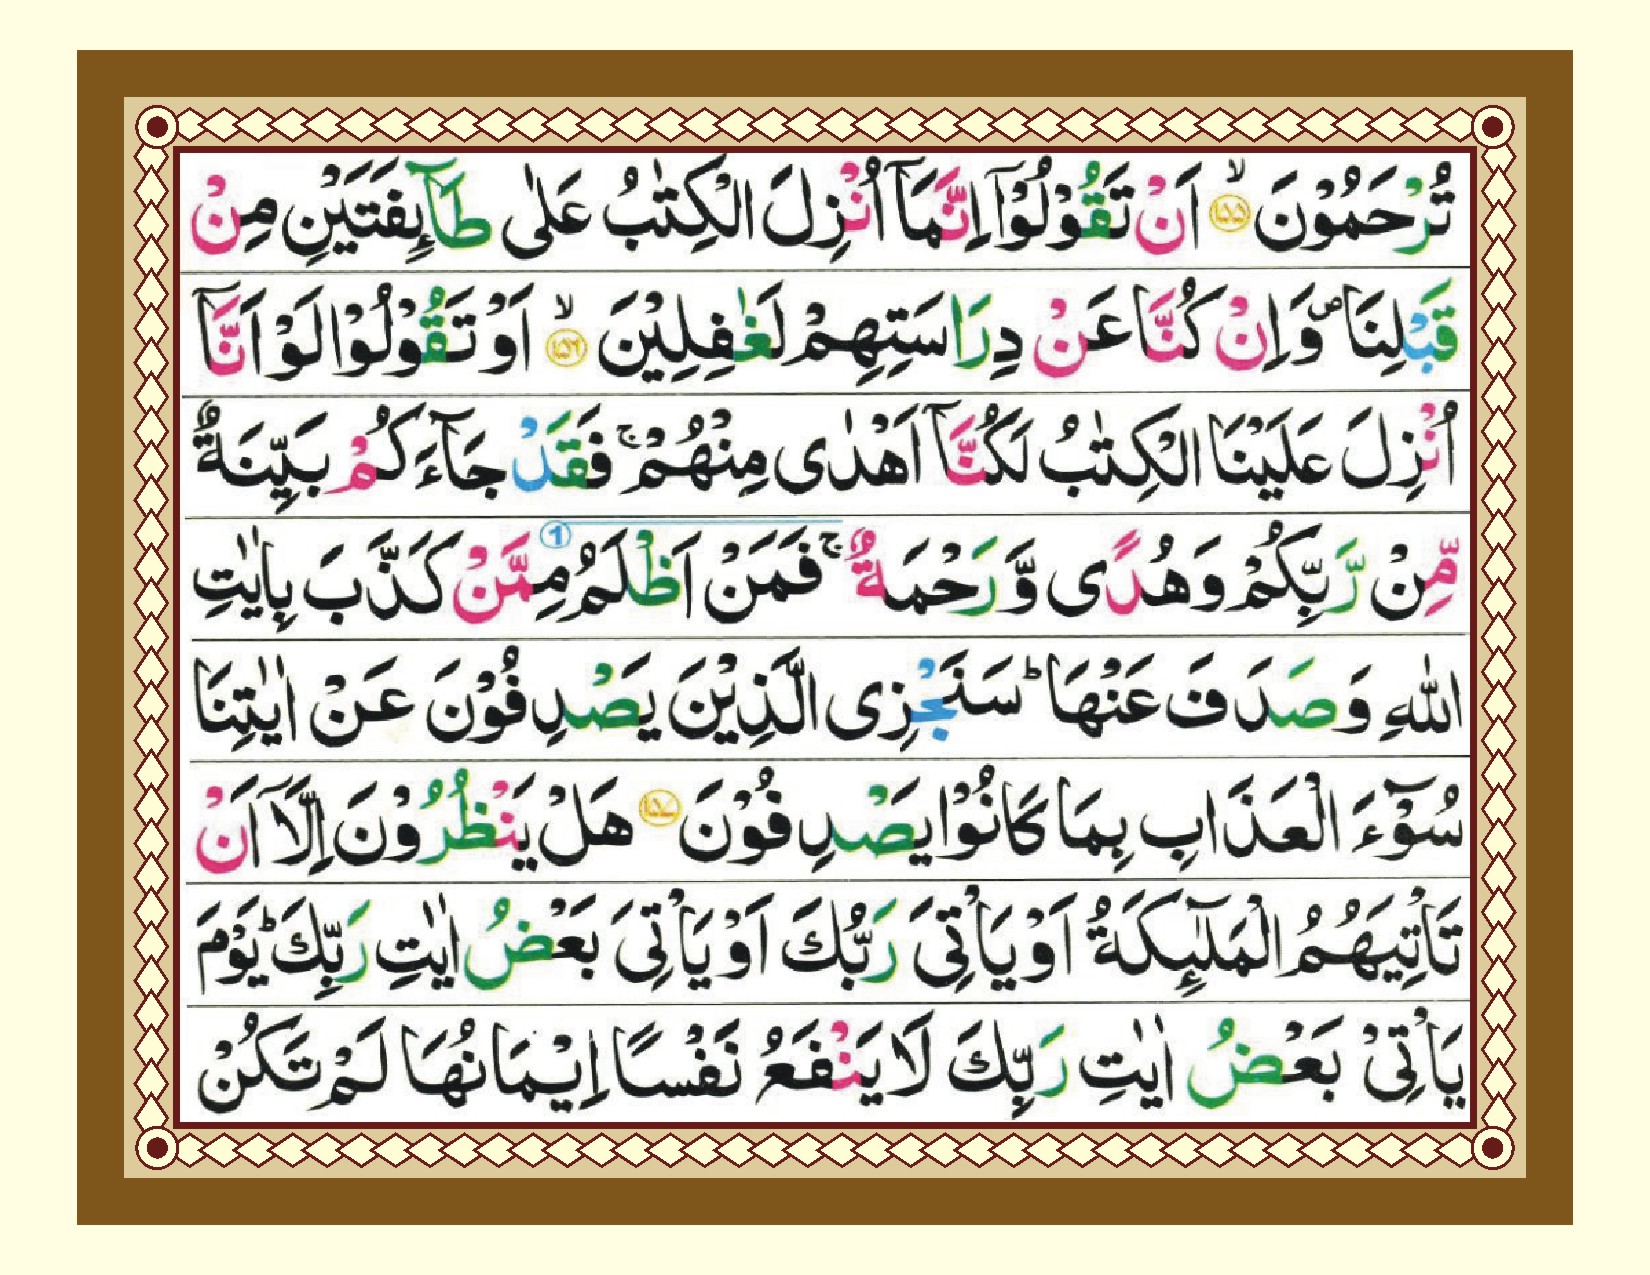 تُرْحَمُوْنَ ۙ﴿۱۵۵﴾ اَنْ تَقُوْلُوْۤا اِنَّمَاۤ اُنْزِلَ الْكِتٰبُ عَلٰى طَآئِفَتَيْنِ مِنْ
قَبْلِنَا ۪ وَاِنْ كُنَّا عَنْ دِرَاسَتِهِمْ لَغٰفِلِيْنَ ۙ﴿۱۵۶﴾ اَوْ تَقُوْلُوْا لَوْ اَنَّاۤ
اُنْزِلَ عَلَيْنَا الْكِتٰبُ لَكُنَّاۤ اَهْدٰى مِنْهُمْ ۚ فَقَدْ جَآءَكُمْ بَيِّنَةٌ
مِّنْ رَّبِّكُمْ وَهُدًى وَّرَحْمَةٌ ۚ فَمَنْ اَظْلَمُ مِمَّنْ كَذَّبَ بِاٰيٰتِ 1
اللّٰهِ وَصَدَفَ عَنْهَا ؕ سَنَجْزِى الَّذِيْنَ يَصْدِفُوْنَ عَنْ اٰيٰتِنَا
سُوْٓءَ الْعَذَابِ بِمَا كَانُوْا يَصْدِفُوْنَ ﴿۱۵۷﴾ هَلْ يَنْظُرُوْنَ اِلَّاۤ اَنْ
تَاْتِيَهُمُ الْمَلٰٓئِكَةُ اَوْ يَاْتِىَ رَبُّكَ اَوْ يَاْتِىَ بَعْضُ اٰيٰتِ رَبِّكَ ؕ يَوْمَ
يَاْتِىْ بَعْضُ اٰيٰتِ رَبِّكَ لَا يَنْفَعُ نَفْسًا اِيْمَانُهَا لَمْ تَكُنْ